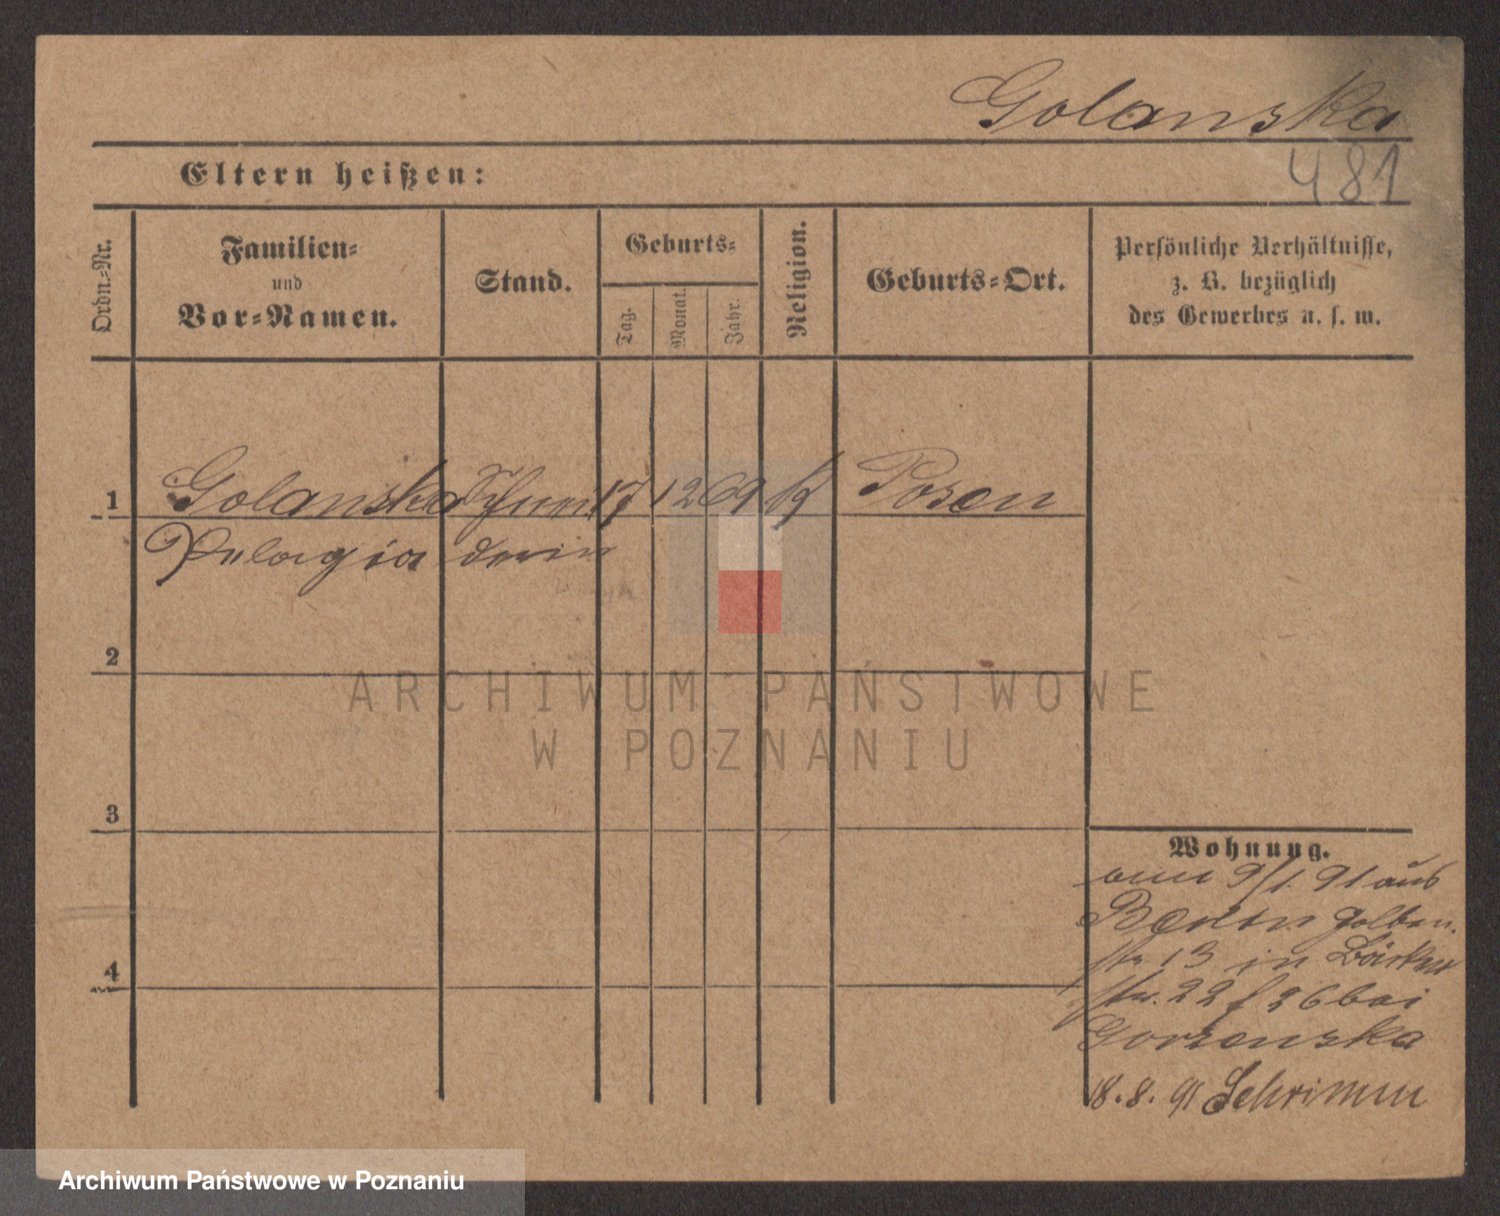 Golanska
Eltern heißen:
481
Ordn.-Nr.
Familien-
und
Vor-Namen.
Stand.
Geburts-
Tag.
Monat.
Jahr.
Religion.
Geburts-Ort.
Persönliche Verhältnisse,
z. B. bezüglich
des Gewerbes u. s. w.
1 Golanska 17 12 69 k Posen
Pelagia derin
2
3
4
Wohnung.
9/1. 91 aus
Berlin
str. 13 in Bäcker
str. 22 f 26 bei
Gorzenska
18. 8. 91 Schrimm
ARCHIWUM PAŃSTWOWE
W POZNANIU
Archiwum Państwowe w Poznaniu